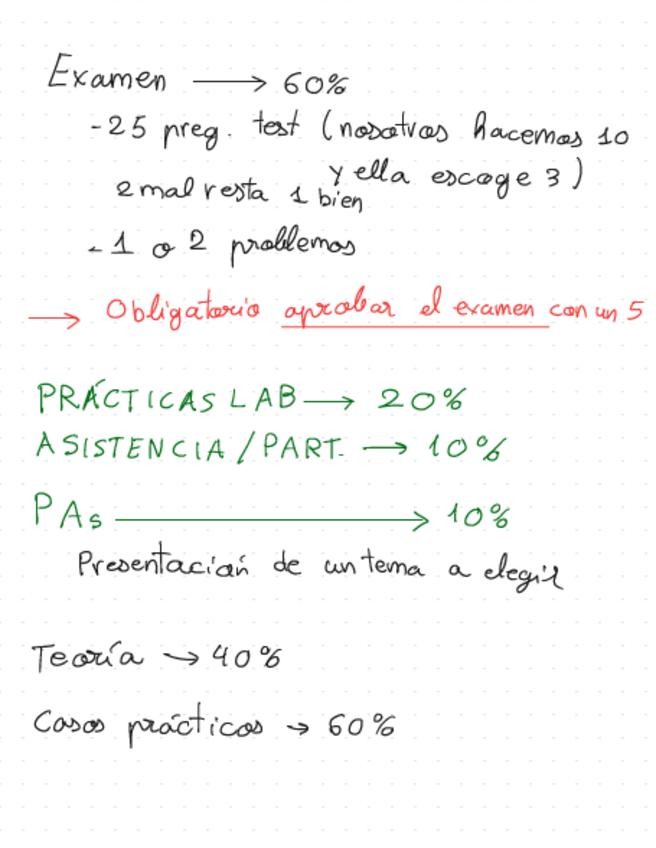 Examen → 60%
- 25 preg. test (nosotros hacemos 10
y ella escoge 3)
2 mal resta 1 bien
- 1 o 2 problemas
→ Obligatorio aprobar el examen con un 5
PRÁCTICAS LAB → 20%
ASISTENCIA/PART. → 10%
PAs → 10%
Presentación de un tema a elegir
Teoría → 40%
Casos prácticos → 60%